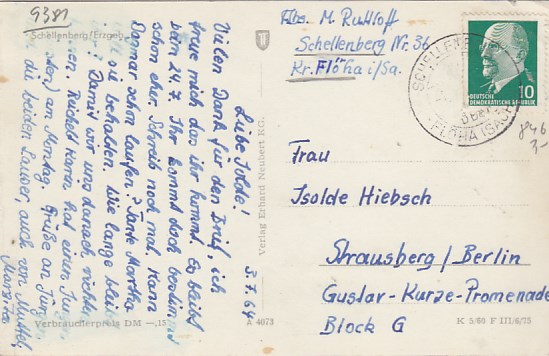 9381
Schellenberg/Erzgeb.
Abs. M. Ruttloff
Schellenberg Nr. 36
Kr. Flöha i/Sa.
SCHELLENBERG
über
FLÖHA (SACHS)
10
DEUTSCHE
DEMOKRATISCHE REPUBLIK
846
3-
3.7.64
Liebe Isolde!
Vielen Dank für den Brief, ich
freue mich das ihr kommt. Es bleibt
beim 24.7. Ihr kommt doch bestimmt
schon eher. Schreib noch mal. Kann
Dagmar schon laufen? Tante Martha
sie behalten. Wie lange bleibt
? Damit wir uns danach richten
Rückert Karin hat einen Jungen
am Montag. Grüße an Jürgen
die beiden Lauser, auch von Muttel
Margita
Frau
Isolde Hiebsch
Strausberg/Berlin
Gustav-Kurze-Promenade
Block G
Verlag Erhard Neubert KG.
Verbraucherpreis DM -,15
A 4073
K 5/60 F III/6/75